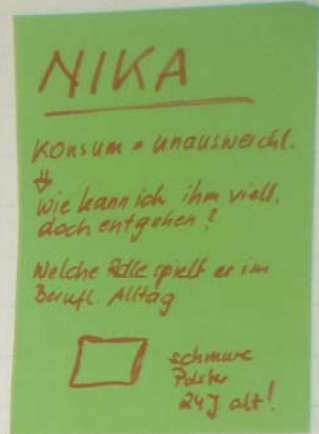 NIKA
Konsum = unausweichl.
⇓
wie kann ich ihm viell.
doch entgehen?
Welche Rolle spielt er im
Berufl. Alltag
schmure
Polster
24J alt!